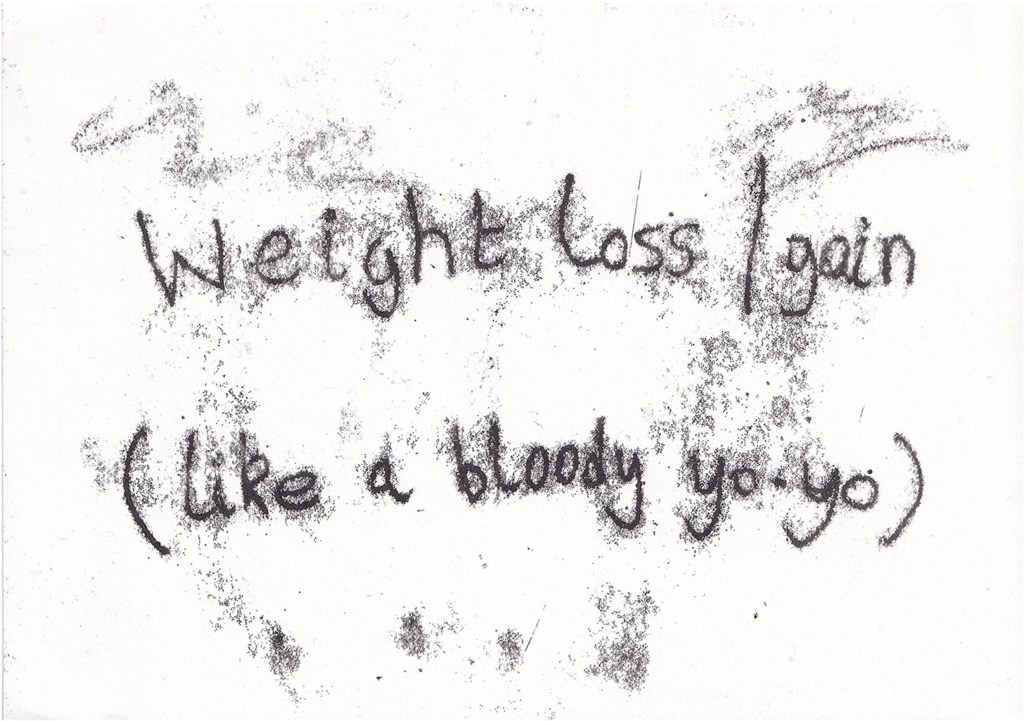 Weight loss / gain
(like a bloody yo-yo)